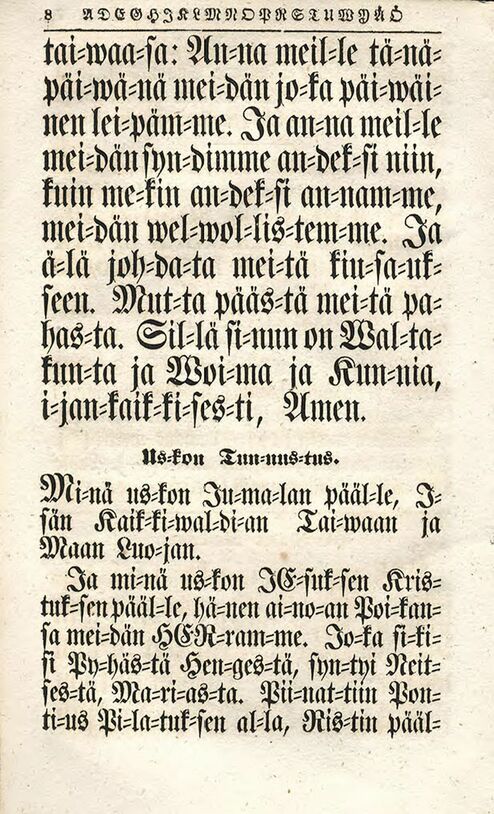 8 A D E G H J K L M N O P R S T U W Y Ä Å Ö
tai-waa-sa: An-na meil-le tä-nä-
päi-wä-nä mei-dän jo-ka päi-wäi-
nen lei-päm-me. Ja an-na meil-le
mei-dän syn-dimme an-dek-si niin,
kuin me-kin an-dek-si an-nam-me,
mei-dän wel-wol-lis-tem-me. Ja
ä-lä joh-da-ta mei-tä kiu-sa-uk-
seen. Mut-ta pääs-tä mei-tä pa-
has-ta. Sil-lä si-nun on Wal-ta-
kun-ta ja Woi-ma ja Kun-nia,
i-jan-kaik-ki-ses-ti, Amen.
Us-kon Tun-nus-tus.
Mi-nä us-kon Ju-ma-lan pääl-le, I-
sän Kaik-ki-wal-di-an Tai-waan ja
Maan Luo-jan.
Ja mi-nä us-kon JE-suk-sen Kris-
tuk-sen pääl-le, hä-nen ai-no-an Poi-kan-
sa mei-dän HER-ram-me. Jo-ka si-ki-
si Py-häs-tä Hen-ges-tä, syn-tyi Neit-
ses-tä, Ma-ri-as-ta. Pii-nat-tiin Pon-
ti-us Pi-la-tuk-sen al-la, Ris-tin pääl-